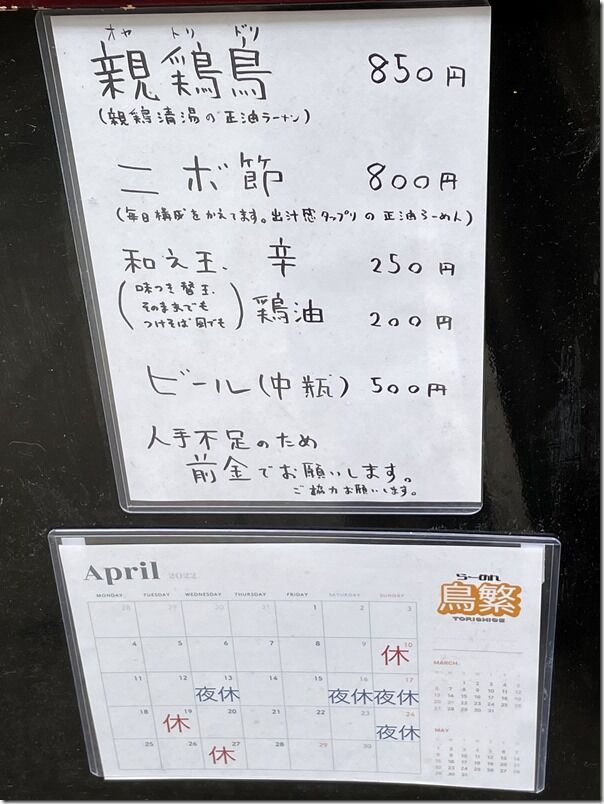 オヤ トリ ドリ
親鶏鳥 850円
(親鶏清湯の正油ラーメン)
ニボ節 800円
(毎日構成をかえてます。出汁感タップリの正油らーめん)
和え玉、辛 250円
(味つき替玉、
そのままでも
つけそば風でも)
鶏油 200円
ビール(中瓶) 500円
人手不足のため
前金でお願いします。
ご協力お願いします。
April 2022
らーめん
鳥繁
TORISHIGE
MONDAY TUESDAY WEDNESDAY THURSDAY FRIDAY SATURDAY SUNDAY
28 29 30 31 1 2 3
4 5 6 7 8 9 10
休
11 12 13 14 15 16 17
夜休 夜休 夜休
18 19 20 21 22 23 24
休 夜休
25 26 27 28 29 30
休
MARCH
MAY